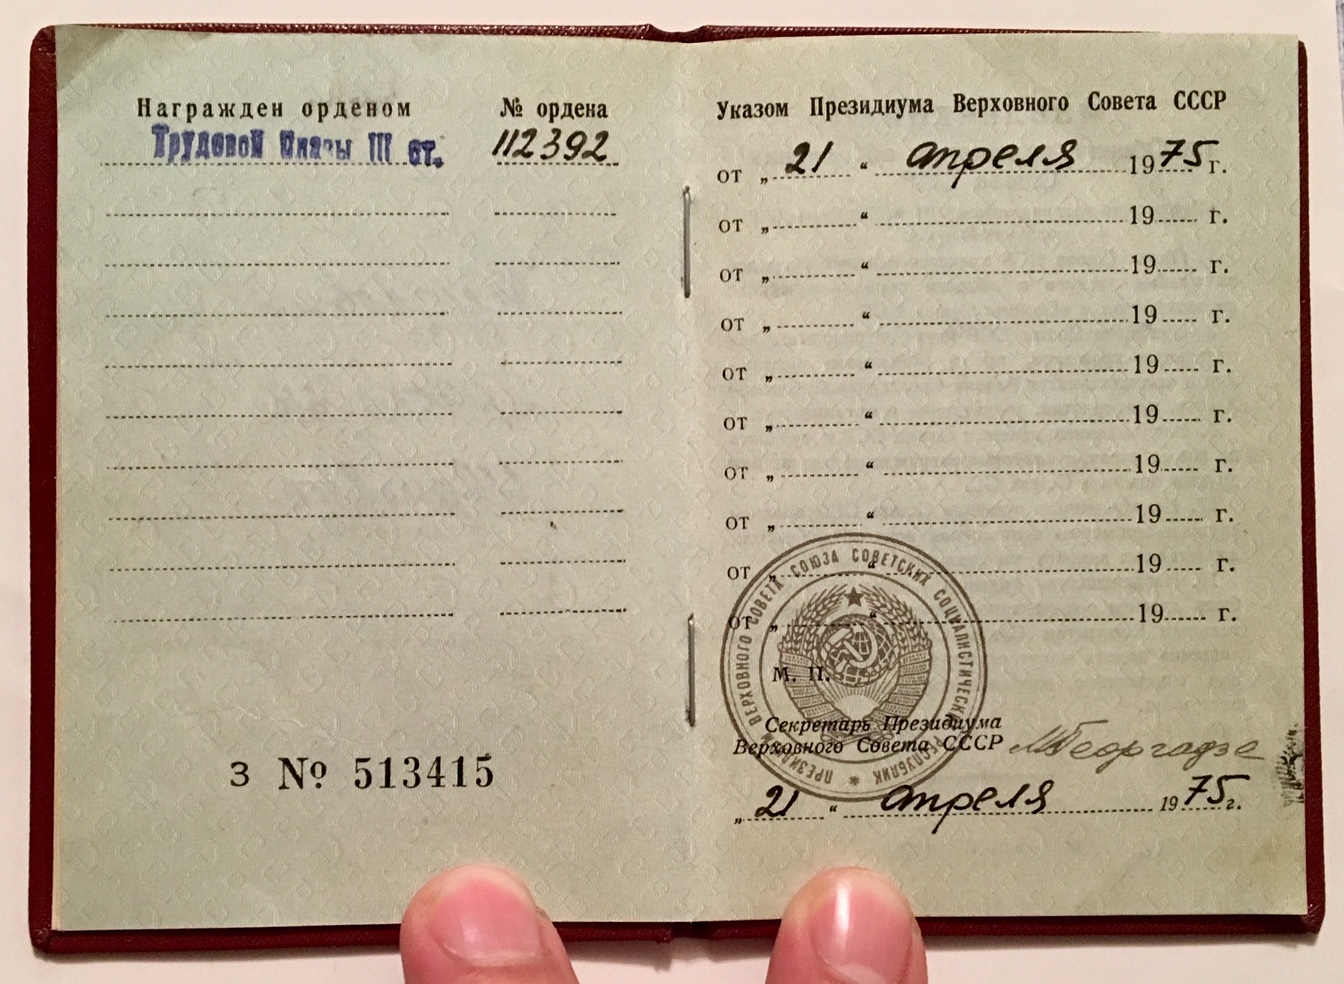 Награжден орденом № ордена
Трудовой Славы III ст. 112392
3 № 513415
Указом Президиума Верховного Совета СССР
от „ 21 “ апреля 1975 г.
от „ “ 19 г.
от „ “ 19 г.
от „ “ 19 г.
от „ “ 19 г.
от „ “ 19 г.
от „ “ 19 г.
от „ “ 19 г.
от „ “ 19 г.
от „ “ 19 г.
ПРЕЗИДИУМ ВЕРХОВНОГО СОВЕТА СОЮЗА СОВЕТСКИХ СОЦИАЛИСТИЧЕСКИХ РЕСПУБЛИК
М. П.
Секретарь Президиума
Верховного Совета СССР МГеоргадзе
„ 21 “ апреля 1975 г.